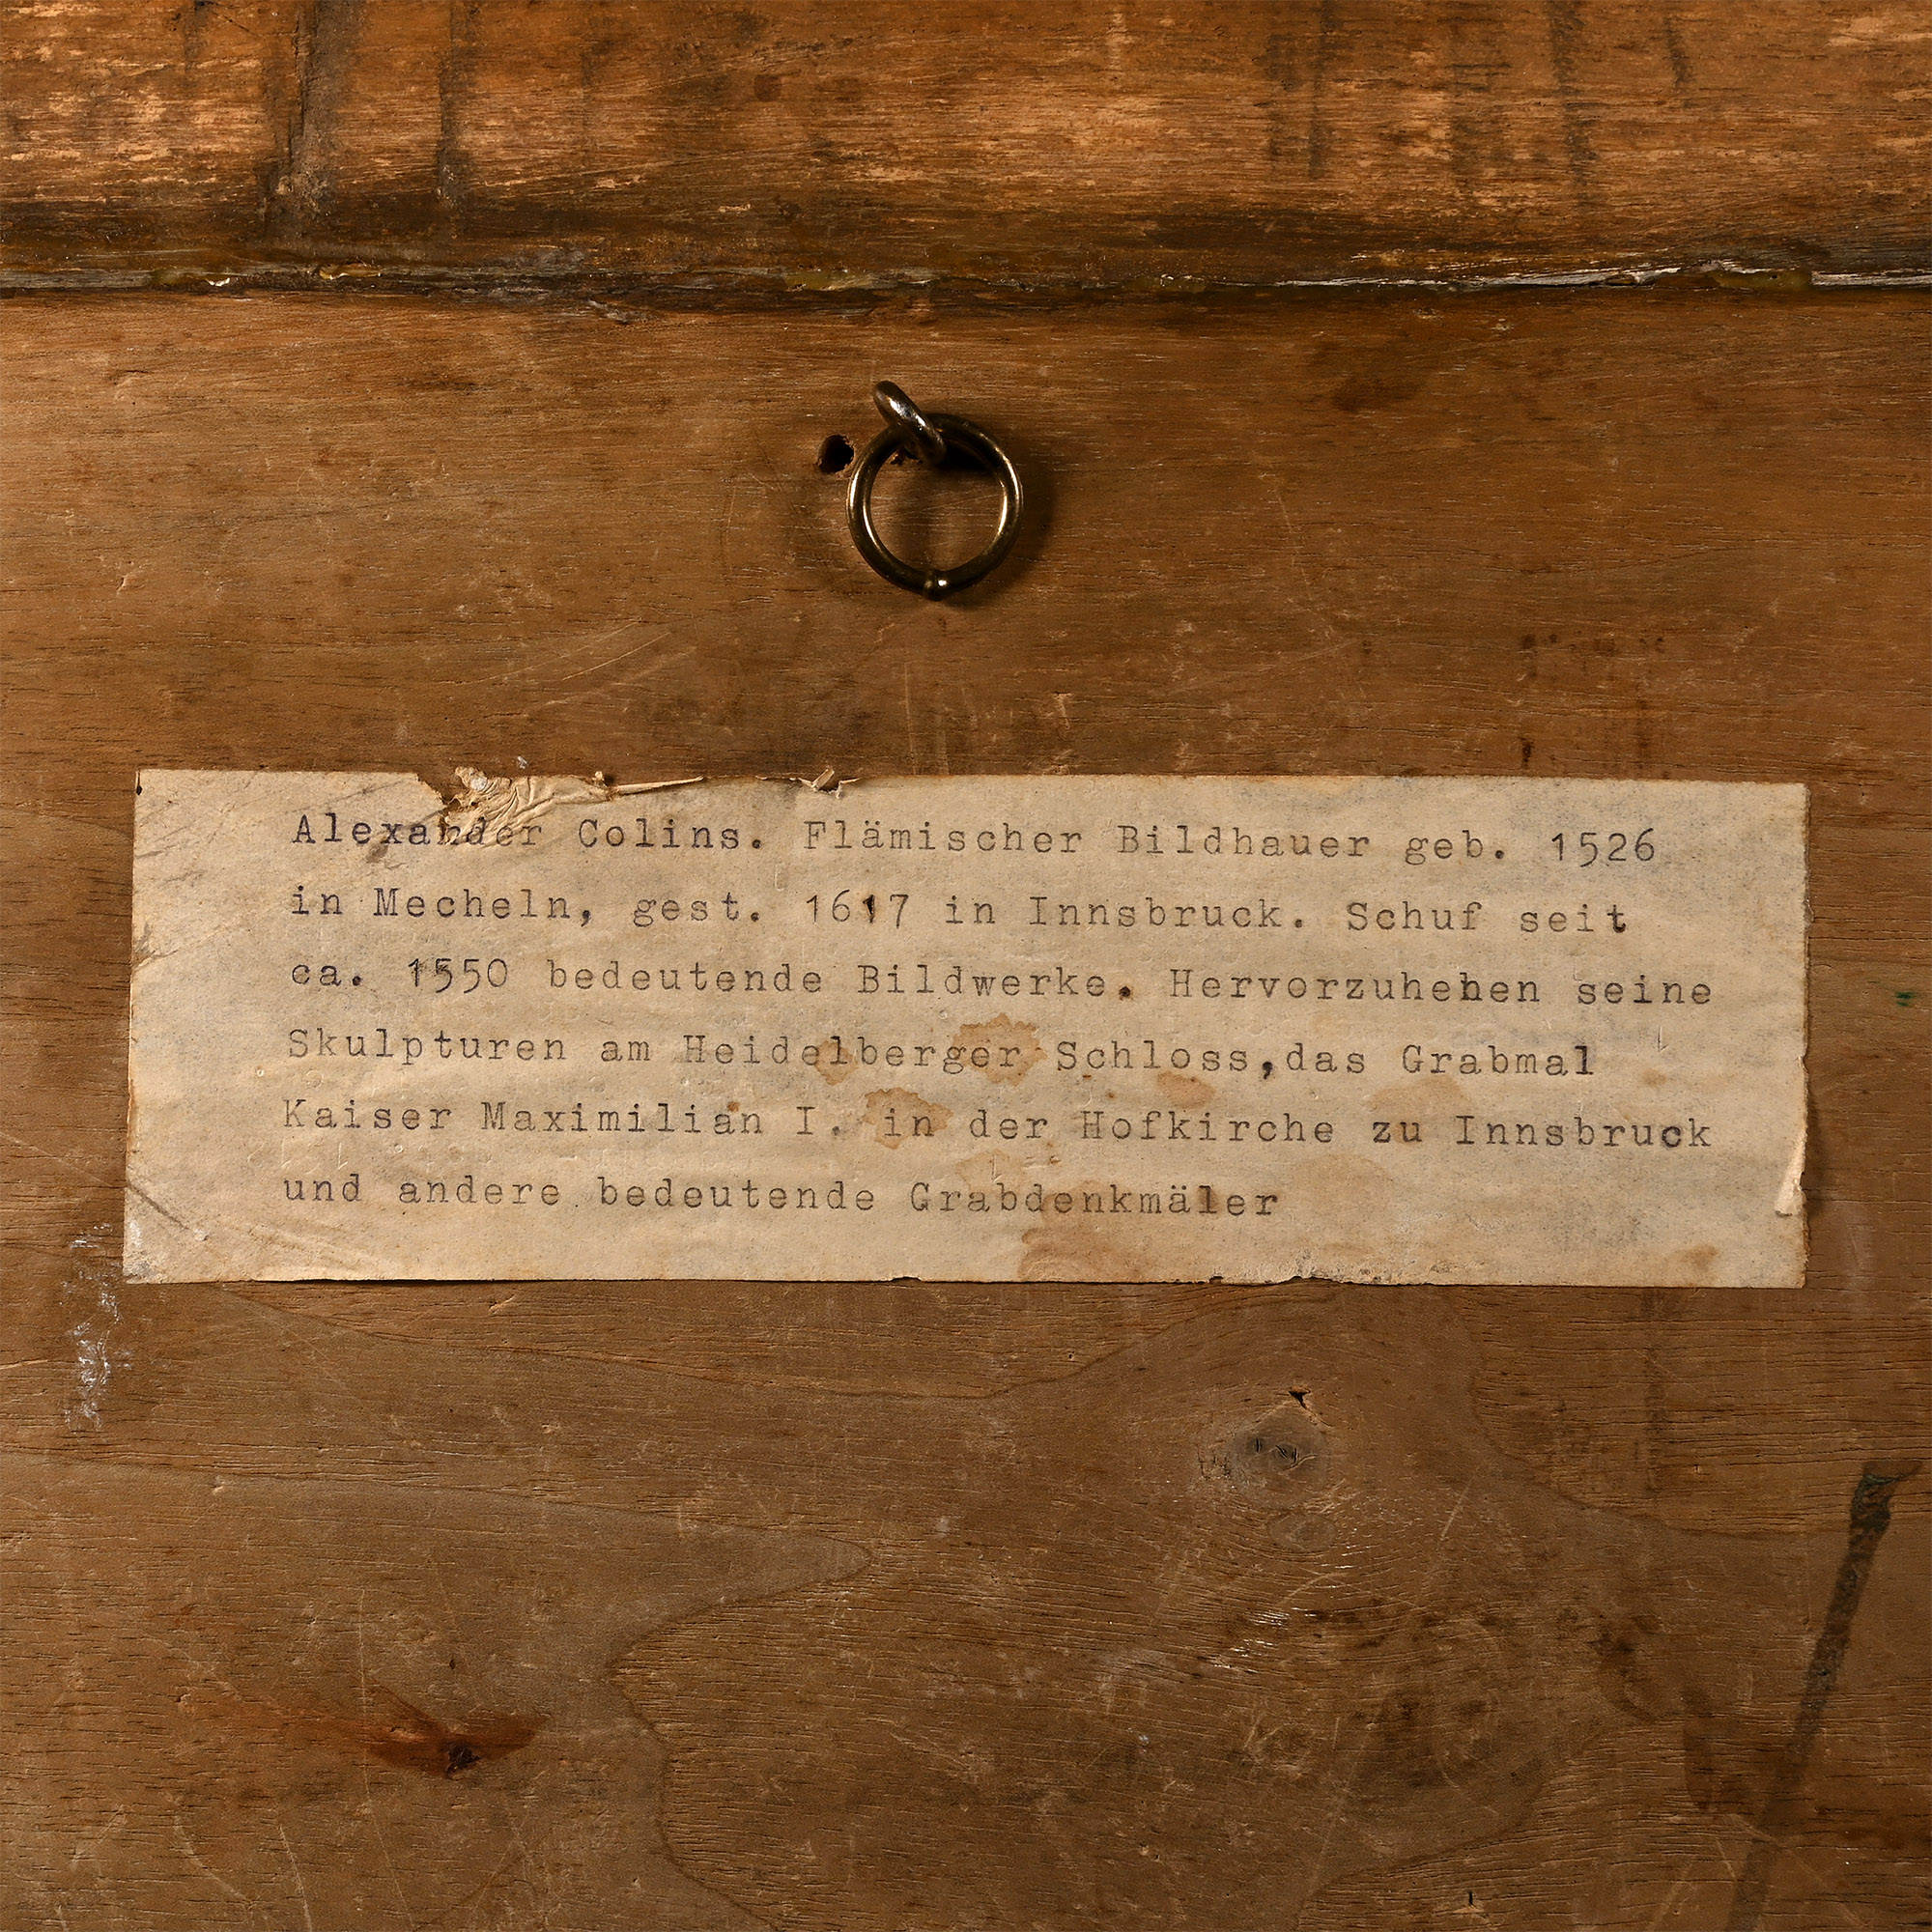 Alexander Colins. Flämischer Bildhauer geb. 1526
in Mecheln, gest. 1617 in Innsbruck. Schuf seit
ca. 1550 bedeutende Bildwerke. Hervorzuhehen seine
Skulpturen am Heidelberger Schloss,das Grabmal
Kaiser Maximilian I. in der Hofkirche zu Innsbruck
und andere bedeutende Grabdenkmäler